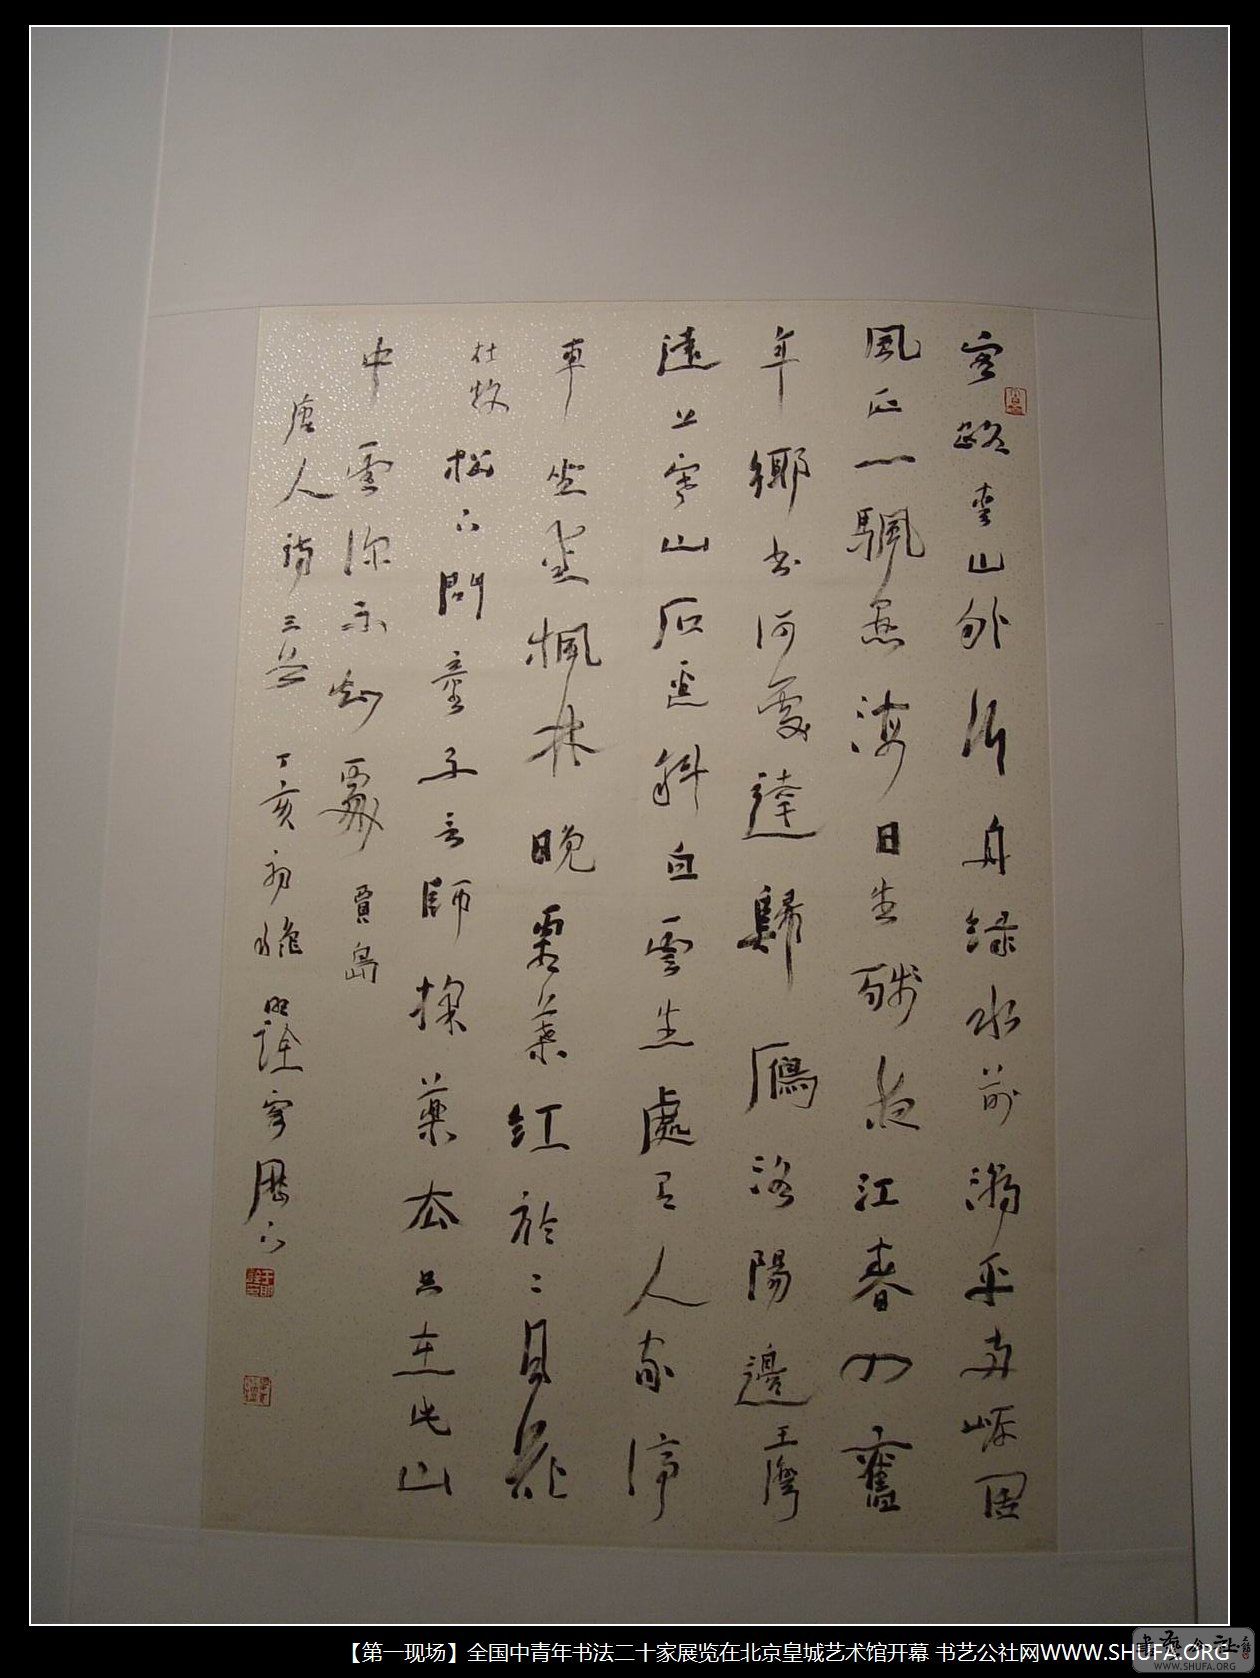 客路青山外行舟綠水前潮平兩岸闊
風正一颿懸海日生殘夜江春入舊
年鄉書何處達歸鴈洛陽邊王灣
遠上寒山石徑斜白雲生處有人家停
車坐愛楓林晚霜葉紅於二月花
杜牧松下問童子言師採藥去只在此山
中雲深不知處賈島
唐人詩三首丁亥初明詮歷下
【第一现场】全国中青年书法二十家展览在北京皇城艺术馆开幕 书艺公社网WWW.SHUFA.ORG
书艺公社
WWW.SHUFA.ORG